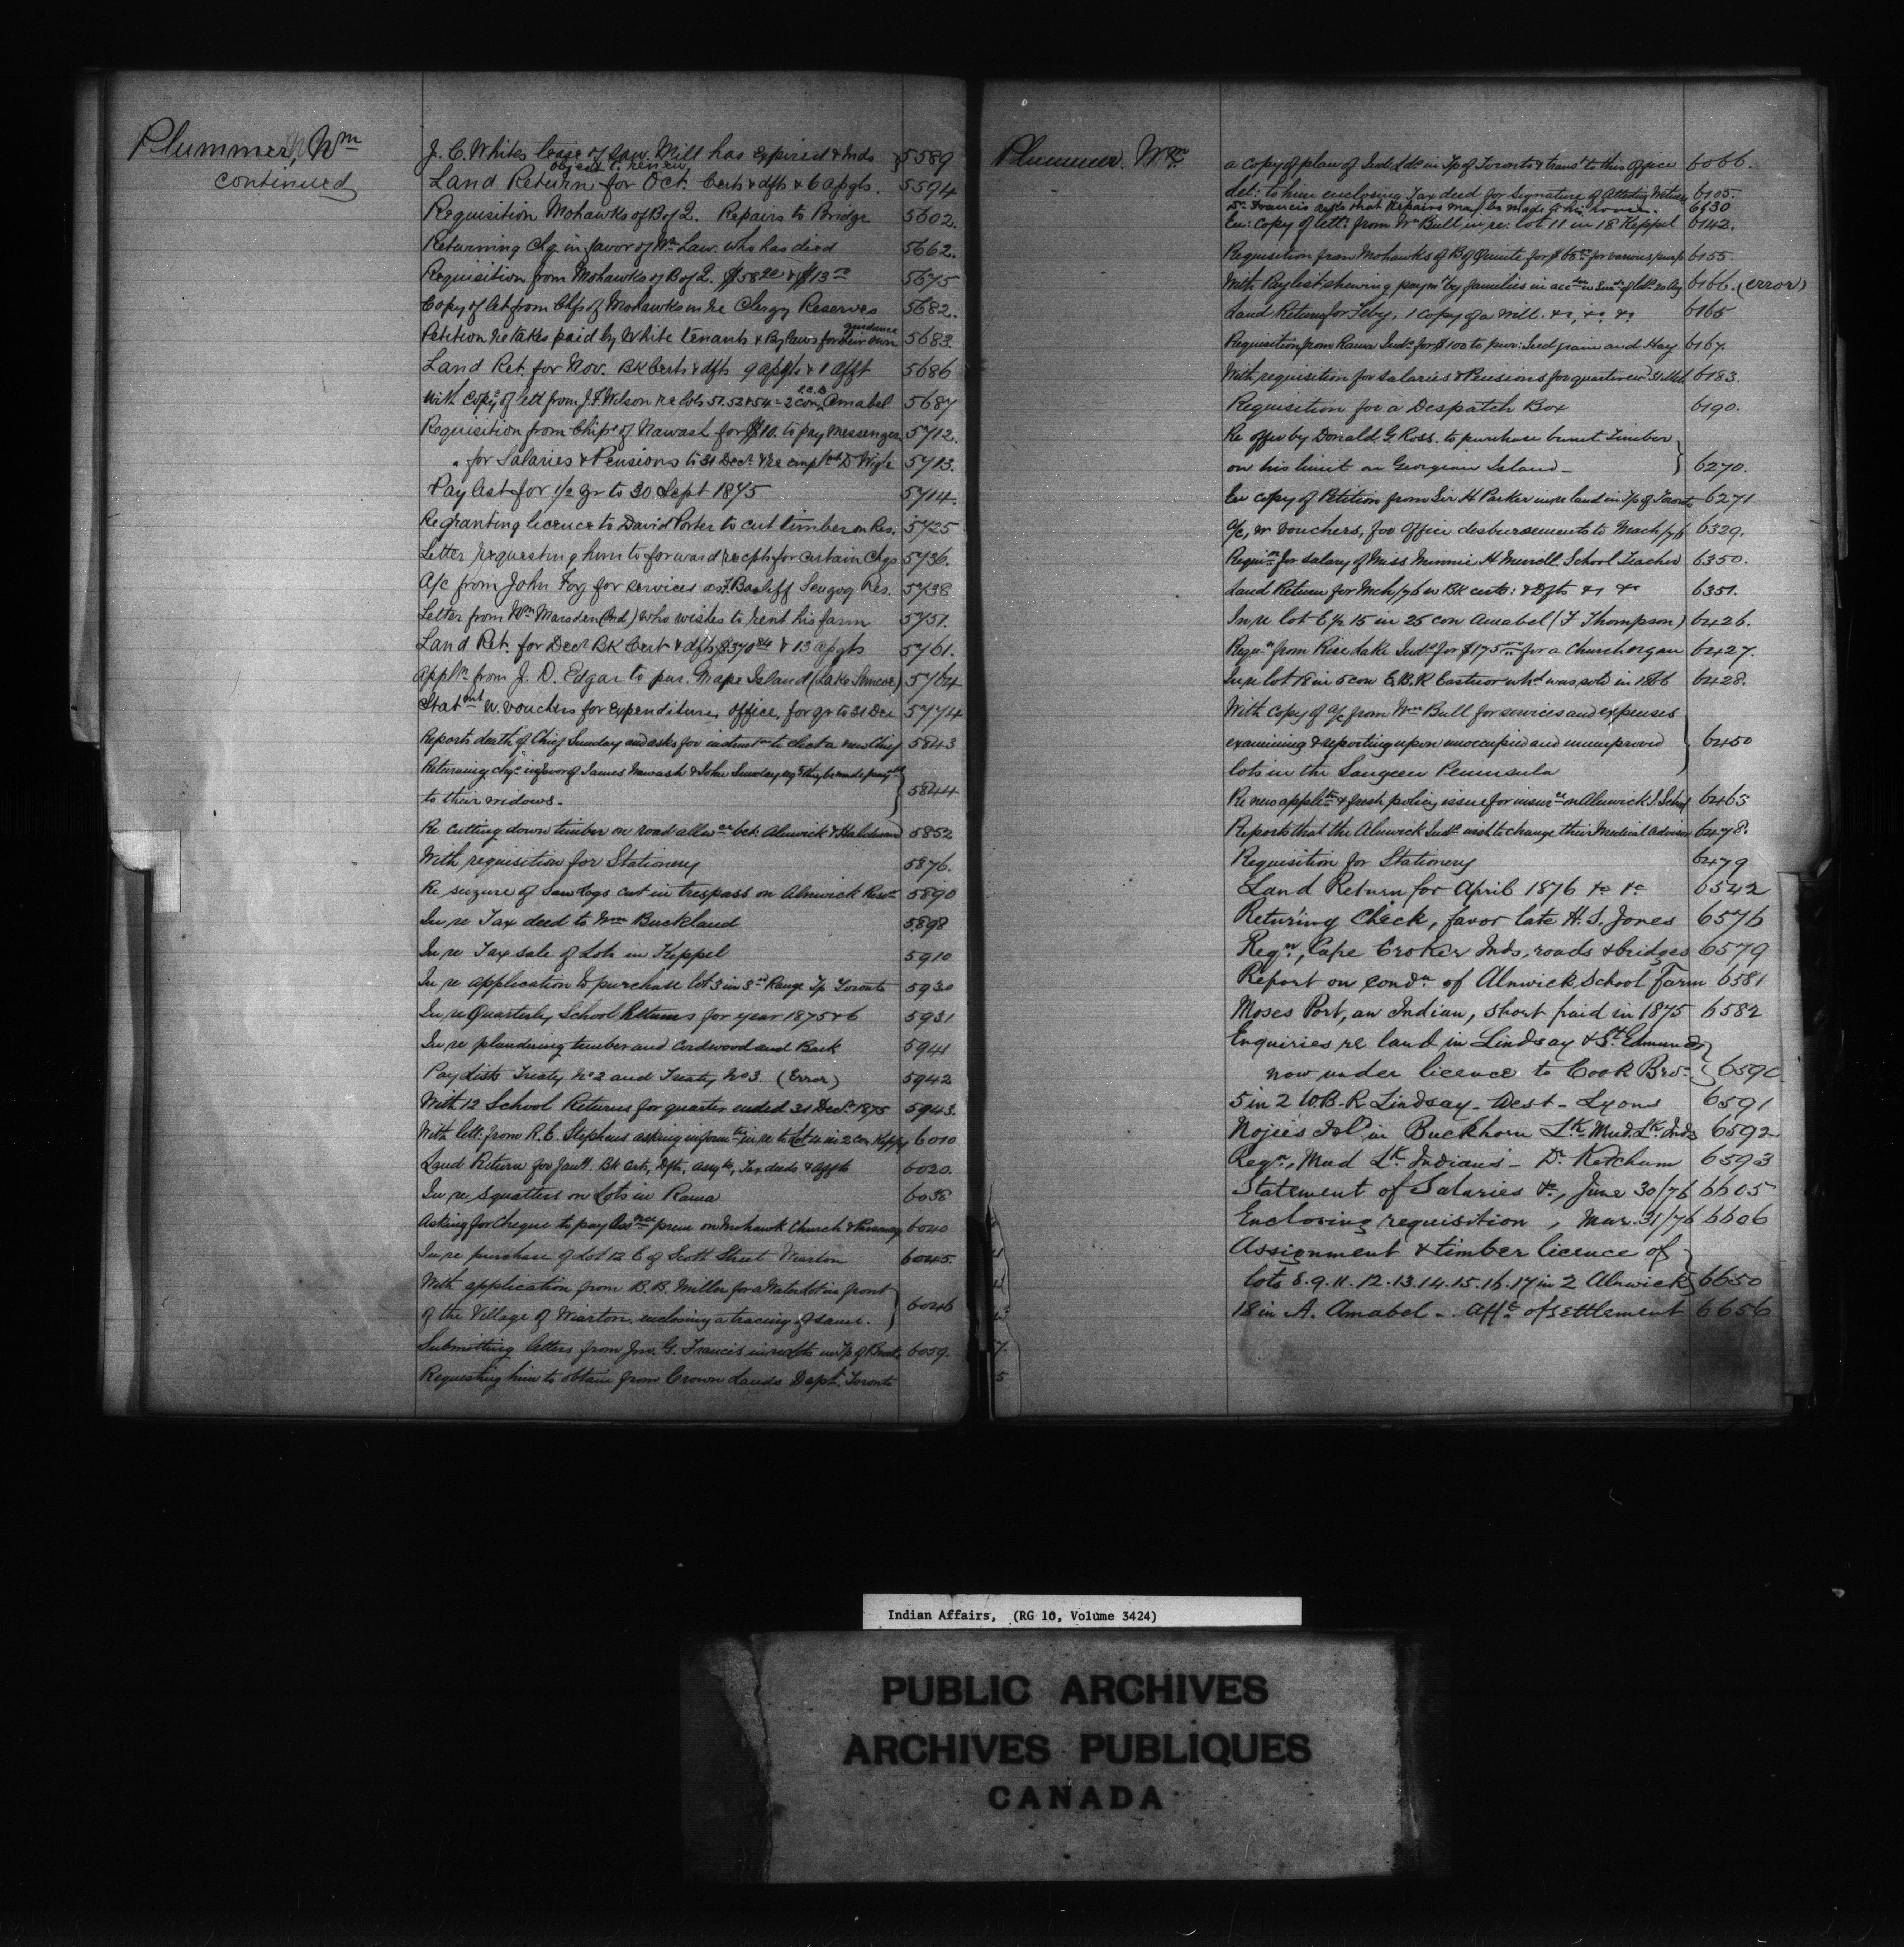 Plummer, Wm
continued
J. C. Whites lease of Saw Mill has expired & Inds 5589
object to renew
Land Return for Oct. Certs & dfts & 6 apgts. 5594
Requisition Mohawks of B of Q. Repairs to Bridge 5602.
Returning Chq in favor of Wm Law. who has died 5662.
Requisition from Mohawks of B of Q. $58 & $13 5675
Copy of let from Chfs of Mohawks in re Clergy Reserves 5682.
guidance
Petition re takes paid by White tenants & By laws for their own 5683.
Land Ret. for Nov. BK Certs & dfts 9 apgts & 1 afft 5686
With Copy of lett from J. F. Wilson re lots 51. 52 & 54 - 2 con Amabel 5687
Requisition from Chips of Nawash for $10. to pay Messenger 5712.
" for Salaries & Pensions to 31 Decr & re D Wigle 5713.
Paylist for 1/2 yr to 30 Sept 1875 5714.
Re granting licence to David Porter to cut timber on Res. 5725
Letter requesting him to forward recpts for certain Chqs 5736.
A/c from John Foy for services as Bailiff Scugog Res. 5738
Letter from Wm Marsden (Ind.) who wishes to rent his farm 5751.
Land Ret. for Decr BK Cert & dfts $370 84 & 13 apgts 5761.
Appln from J. D. Edgar to pur. Grape Island (Lake Simcoe) 5764
Statmnt w. vouchers for expenditure, office, for qr to 31 Dec 5774
Reports death of Chief Sunday and asks for instruct to elect a new Chief 5843
Returning chqs in favor of James Nawash & John Sunday reqs they be made payble
to their widows. 5844
Re cutting down timber on road allwce bet: Alnwick & Haldimand 5852
With requisition for Stationery 5876.
Re seizure of Saw logs cut in trespass on Alnwick Rese 5890
In re Tax deed to Wm Buckland 5898
In re Tax sale of Lots in Keppel 5910
In re application to purchase lot 3 in 3rd Range Tp Toronto 5930
In re Quarterly School Returns for year 1875 & 6 5931
In re plundering timber and Cordwood and Bark 5941
Pay Lists Treaty No 2 and Treaty No 3. (Error) 5942
With 12 School Returns for quarter ended 31 Decr 1875 5943.
With lett: from R. C. Stephens asking inform tn in re to Lot 4 in 2 con Keppel 6010
Land Return for Jany. BK Certs, Dfts, assgts, Tax deeds & affts 6020.
In re squatters on Lots in Rama 6038
Asking for Cheque to pay Assnce prem on Mohawk Church & Parsonage 6040
In re purchase of Lot 12 E of Scott Street Wiarton 6045.
With application from B. B. Miller for a Waterlot in front
of the Village of Wiarton enclosing a tracing of same. 6046
Submitting letters from Jno. G. Francis in re lots in Tp of Bruce 6059.
Requesting him to obtain from Crown Lands Dept. Toronto
Plummer. Wm
a copy of plan of Ind: Lds in Tp of Toronto & transt to this Office 6066.
del: to him enclosing Tax deed for signature of Attesting Witness 6105.
Dr. Francis asks that Repairs may be made to his house. 6130
En: Copy of lett: from Wm Bull in re: lot 11 in 18 Keppel 6142.
Requisition from Mohawks of B of Quinte for $65 for various purp 6155.
With Paylist shewing paymt by families in acc 6166. (error)
Land Return for Feby. 1 Copy of a Will. &c, &c, &c 6165
Requisition from Rama Inds for $100 to pur: Seed grain and Hay 6167.
With requisition for salaries & Pensions for quarter end 31 Mch 6183.
Requisition for a Despatch Box 6190.
Re offer by Donald G Ross. to purchase burnt Timber
on his limit on Georgian Island - 6270.
En copy of Petition from Sir H Parker in re land in Tp of Toronto 6271
A/c, w vouchers, for Office disbursements to March/76 6329.
Requisn for salary of Miss Minnie H Merrell School Teacher 6350.
Land Return for Mch/76 w BK certs: & Dfts &c &c 6351.
In re lot E 1/2 15 in 25 con Amabel (F Thompson) 6426.
Requn from Rice Lake Inds for $175 for a Church organ 6427.
In re lot 18 in 5 con E. B. R Eastnor whd was sold in 1866 6428.
With Copy of a/c from Wm Bull for services and expenses
examining & reporting upon unoccupied and unimproved 6450
lots in the Saugeen Peninsula
Re new applictn & fresh policy issue for insurce on Alnwick I. School 6465
Reports that the Alnwick Inds wish to change their Medical adviser 6478.
Requisition for Stationery 6479
Land Return for April 1876 &c &c 6542
Retur'ing Check, favor late H. S. Jones 6576
Reqn, Cape Croker Inds, roads & bridges 6579
Report on condn of Alnwick School Farm 6581
Moses Port, an Indian, short paid in 1875 6582
Enquiries re land in Lindsay & St. Edmunds
now under licence to Cook Bros. 6590
5 in 2 W.B.R. Lindsay - West - Lyons 6591
Nojies Isld in Buckhorn Lk Mud. Lk. Inds 6592
Reqn, Mud Lk. Indians - Dr. Ketchum 6593
Statement of Salaries &c, June 30/76 6605
Enclosing requisition, Mar. 31/76 6606
Assignment & timber licence of
lots 8. 9. 11. 12. 13. 14. 15. 16. 17 in 2 Alnwick 6650
18 in A. Amabel - Afft of settlement 6656
Indian Affairs, (RG 10, Volume 3424)
PUBLIC ARCHIVES
ARCHIVES PUBLIQUES
CANADA